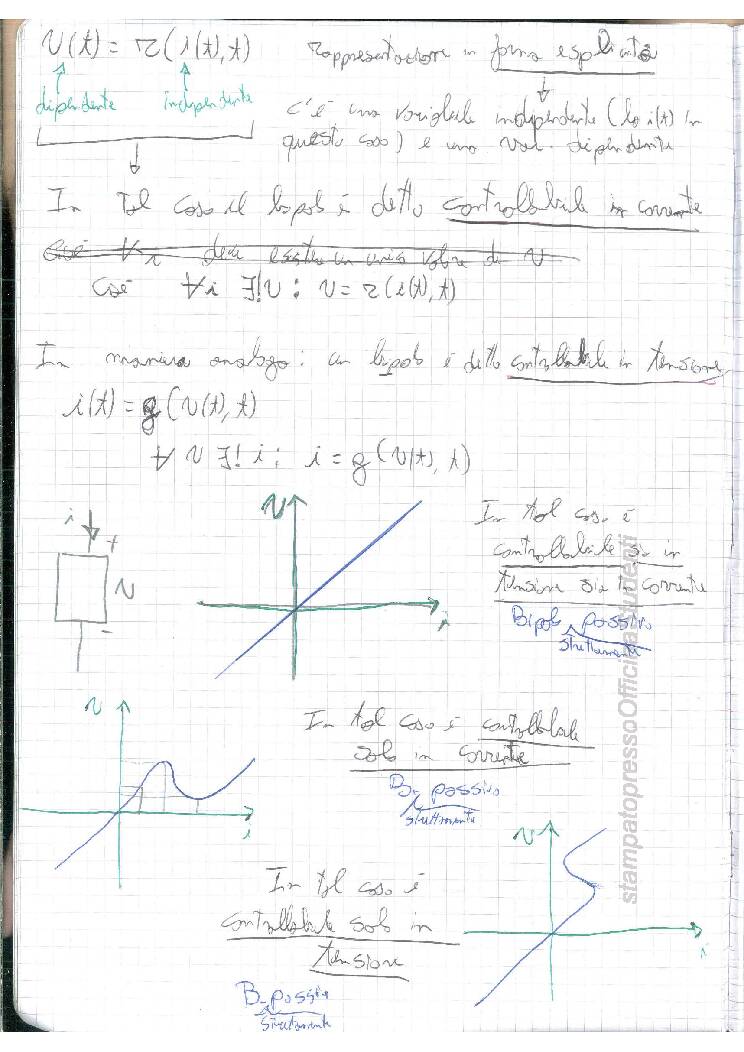 v(t) = r(i(t), t)
rappresentazione in forma esplicita
dipendente indipendente
c'è una variabile indipendente (la i(t) in
questo caso) e una var. dipendente
In tal caso il bipolo è detto controllabile in corrente
cioè ∀i deve esistere un unico valore di v
Cioè ∀i ∃!v : v = r(i(t), t)
In maniera analoga: un bipolo è detto controllabile in tensione
i(t) = g(v(t), t)
∀ v ∃! i : i = g(v(t), t)
i
+
v
-
v
i
In tal caso è
controllabile sia in
tensione sia in corrente
Bipolo passivo
strettamente
v
i
In tal caso è controllabile
solo in corrente
B. passivo
strettamente
v
i
In tal caso è
controllabile solo in
tensione
B. passivo
strettamente
stampatopressoOfficinaStudenti